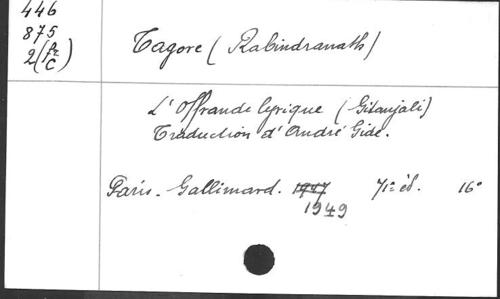 446
875
2(fr
C)
Tagore (Rabindranath)
L'Offrande lyrique (Gitanjali)
Traduction d'André Gide.
Paris. Gallimard. 1947 71e éd. 16°
1949